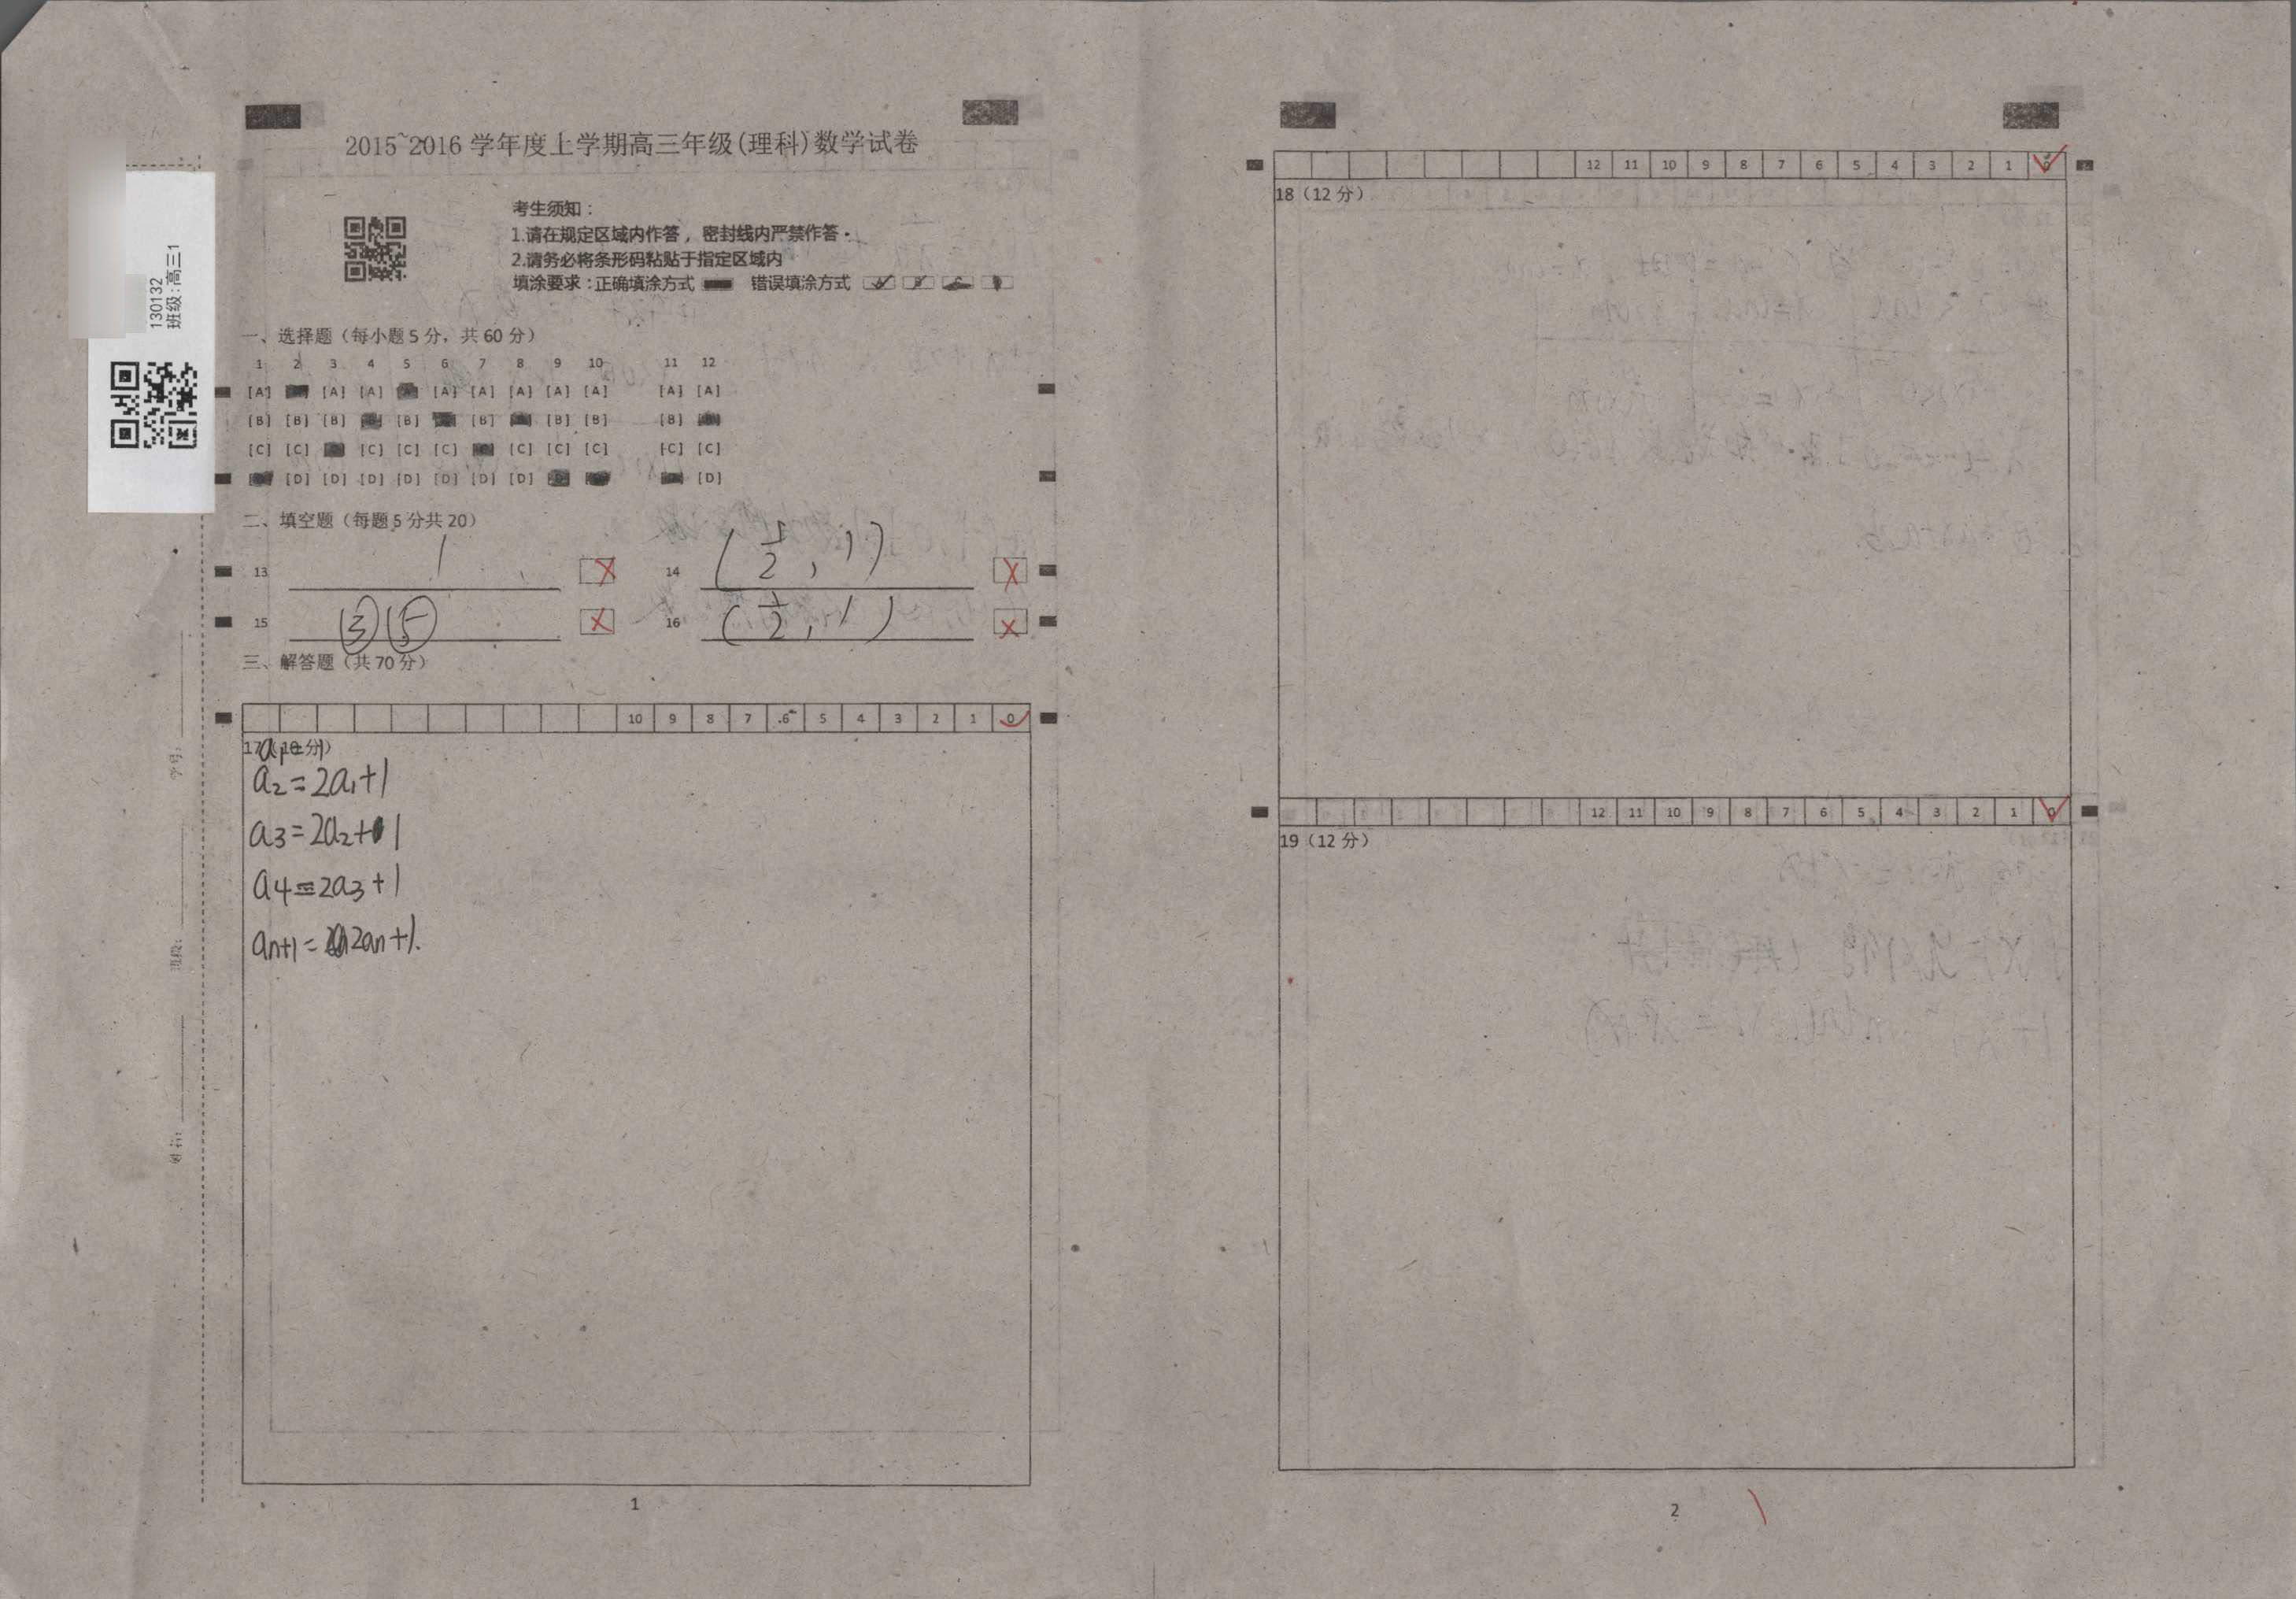 2015~2016 学年度上学期高三年级(理科)数学试卷
130132
班级:高三1
考生须知：
1.请在规定区域内作答，密封线内严禁作答.
2.请务必将条形码粘贴于指定区域内
填涂要求：正确填涂方式 错误填涂方式
一、选择题（每小题5分，共60分）
1 2 3 4 5 6 7 8 9 10 11 12
[A] [A] [A] [A] [A] [A] [A] [A] [A] [A]
[B] [B] [B] [B] [B] [B] [B] [B]
[C] [C] [C] [C] [C] [C] [C] [C] [C] [C]
[D] [D] [D] [D] [D] [D] [D] [D]
二、填空题（每题5分共20）
13 1
14 (1/2, 1)
15 ③⑤
16 (1/2, 1)
三、解答题（共70分）
10 9 8 7 6 5 4 3 2 1 0
17（10分）
a₁=1
a₂=2a₁+1
a₃=2a₂+1
a₄=2a₃+1
aₙ₊₁=2aₙ+1.
学号:
班级:
姓名:
1
12 11 10 9 8 7 6 5 4 3 2 1 0
18（12分）
12 11 10 9 8 7 6 5 4 3 2 1 0
19（12分）
2